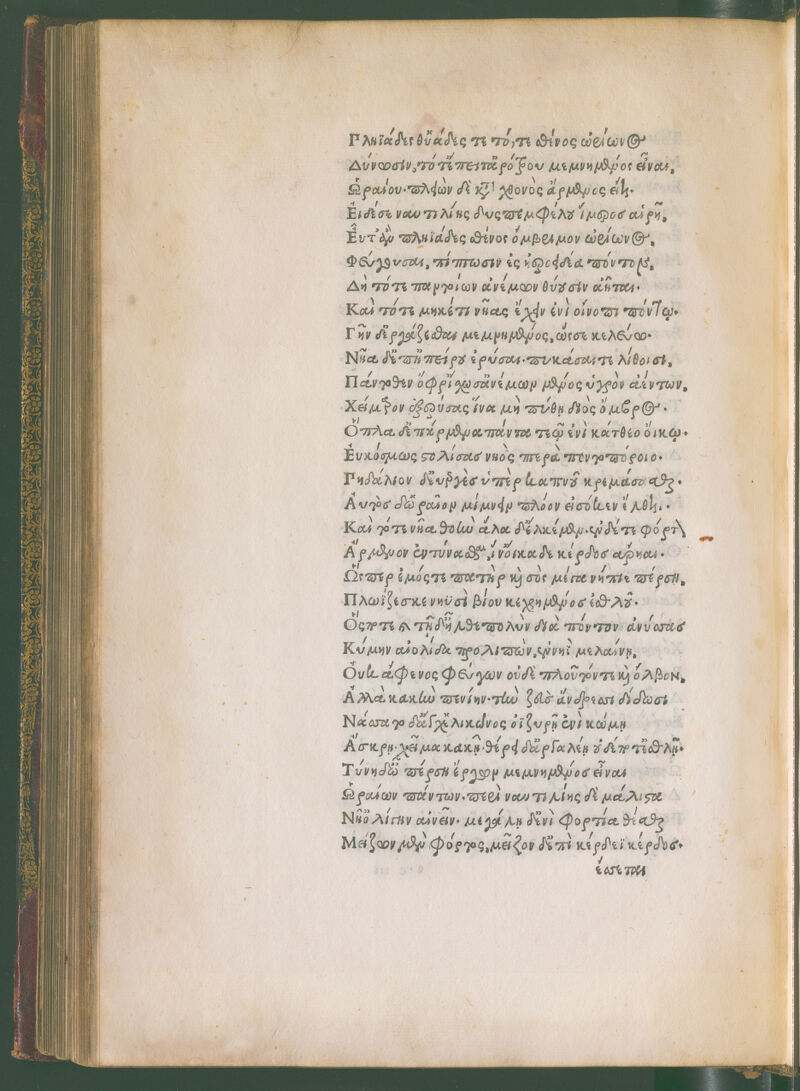 Πληϊάδες θ' ὑάδες τε τό, τε σθένος ὠρίωνος
Δύνωσιν, τότ' ἔπειτ' ἀρότου μεμνημένος εἶναι,
Ὡραίου· πλειὼν δὲ κατὰ χθονὸς ἄρμενος εἴη·
Εἰ δέ σε ναυτιλίης δυσπεμφέλου ἵμερος αἱρῇ,
Εὖτ' ἂν πληϊάδες σθένος ὄμβριμον ὠρίωνος,
Φεύγουσαι, πίπτωσιν ἐς ἠεροειδέα πόντον,
Δὴ τότε παντοίων ἀνέμων θύουσιν ἀῆται·
Καὶ τότε μηκέτι νῆας ἔχειν ἐνὶ οἴνοπι πόντῳ·
Γῆν δ' ἐργάζεσθαι μεμνημένος, ὥς σε κελεύω·
Νῆα δ' ἐπ' ἠπείρου ἐρύσαι· πυκάσαι τε λίθοισι,
Πάντοθεν ὄφρ' ἴσχωσ' ἀνέμων μένος ὑγρὸν ἀέντων,
Χείμαρον ἐξερύσας ἵνα μὴ πύθῃ διὸς ὄμβρος·
Ὅπλα δ' ἐπάρμενα πάντα τεῷ ἐνὶ κάτθεο οἴκῳ·
Εὐκόσμως στολίσας νηὸς πτερὰ ποντοπόροιο·
Πηδάλιον δ' εὐεργὲς ὑπὲρ καπνοῦ κρεμάσασθαι·
Αὐτὸς δ' ὡραῖον μίμνειν πλόον εἰσόκεν ἔλθῃ·
Καὶ τότε νῆα θοὴν ἅλα δ' ἑλκέμεν· ἐν δέ τε φόρτον
Ἄρμενον ἐντύνασθαι, ἵν' οἴκαδε κέρδος ἄρηαι·
Ὥς περ ἐμός τε πατὴρ καὶ σὸς μέγα νήπιε πέρση,
Πλωΐζεσκε νηϋσὶ βίου κεχρημένος ἐσθλοῦ·
Ὅς ποτε καὶ τῇδ' ἦλθε πολὺν διὰ πόντον ἀνύσσας
Κύμην αἰολίδα προλιπὼν, ἐν νηῒ μελαίνῃ,
Οὐκ ἄφενος φεύγων οὐδὲ πλοῦτόν τε καὶ ὄλβον,
Ἀλλὰ κακὴν πενίην· τὴν ζεὺς ἄνδρεσσι δίδωσι
Νάσσατο δ' ἄγχ' ἑλικῶνος ὀϊζυρῇ ἐνὶ κώμῃ
Ἄσκρῃ· χεῖμα κακῇ· θέρει δ' ἀργαλέῃ οὐδέ ποτ' ἐσθλῇ·
Τύνη δ' ὦ πέρση ἔργων μεμνημένος εἶναι
Ὡραίων πάντων· περὶ ναυτιλίης δὲ μάλιστα
Νῆ' ὀλίγην αἰνεῖν· μεγάλῃ δ' ἐνὶ φορτία θέσθαι
Μείζων μὲν φόρτος, μεῖζον δ' ἐπὶ κέρδεϊ κέρδος·
ἔσσεται